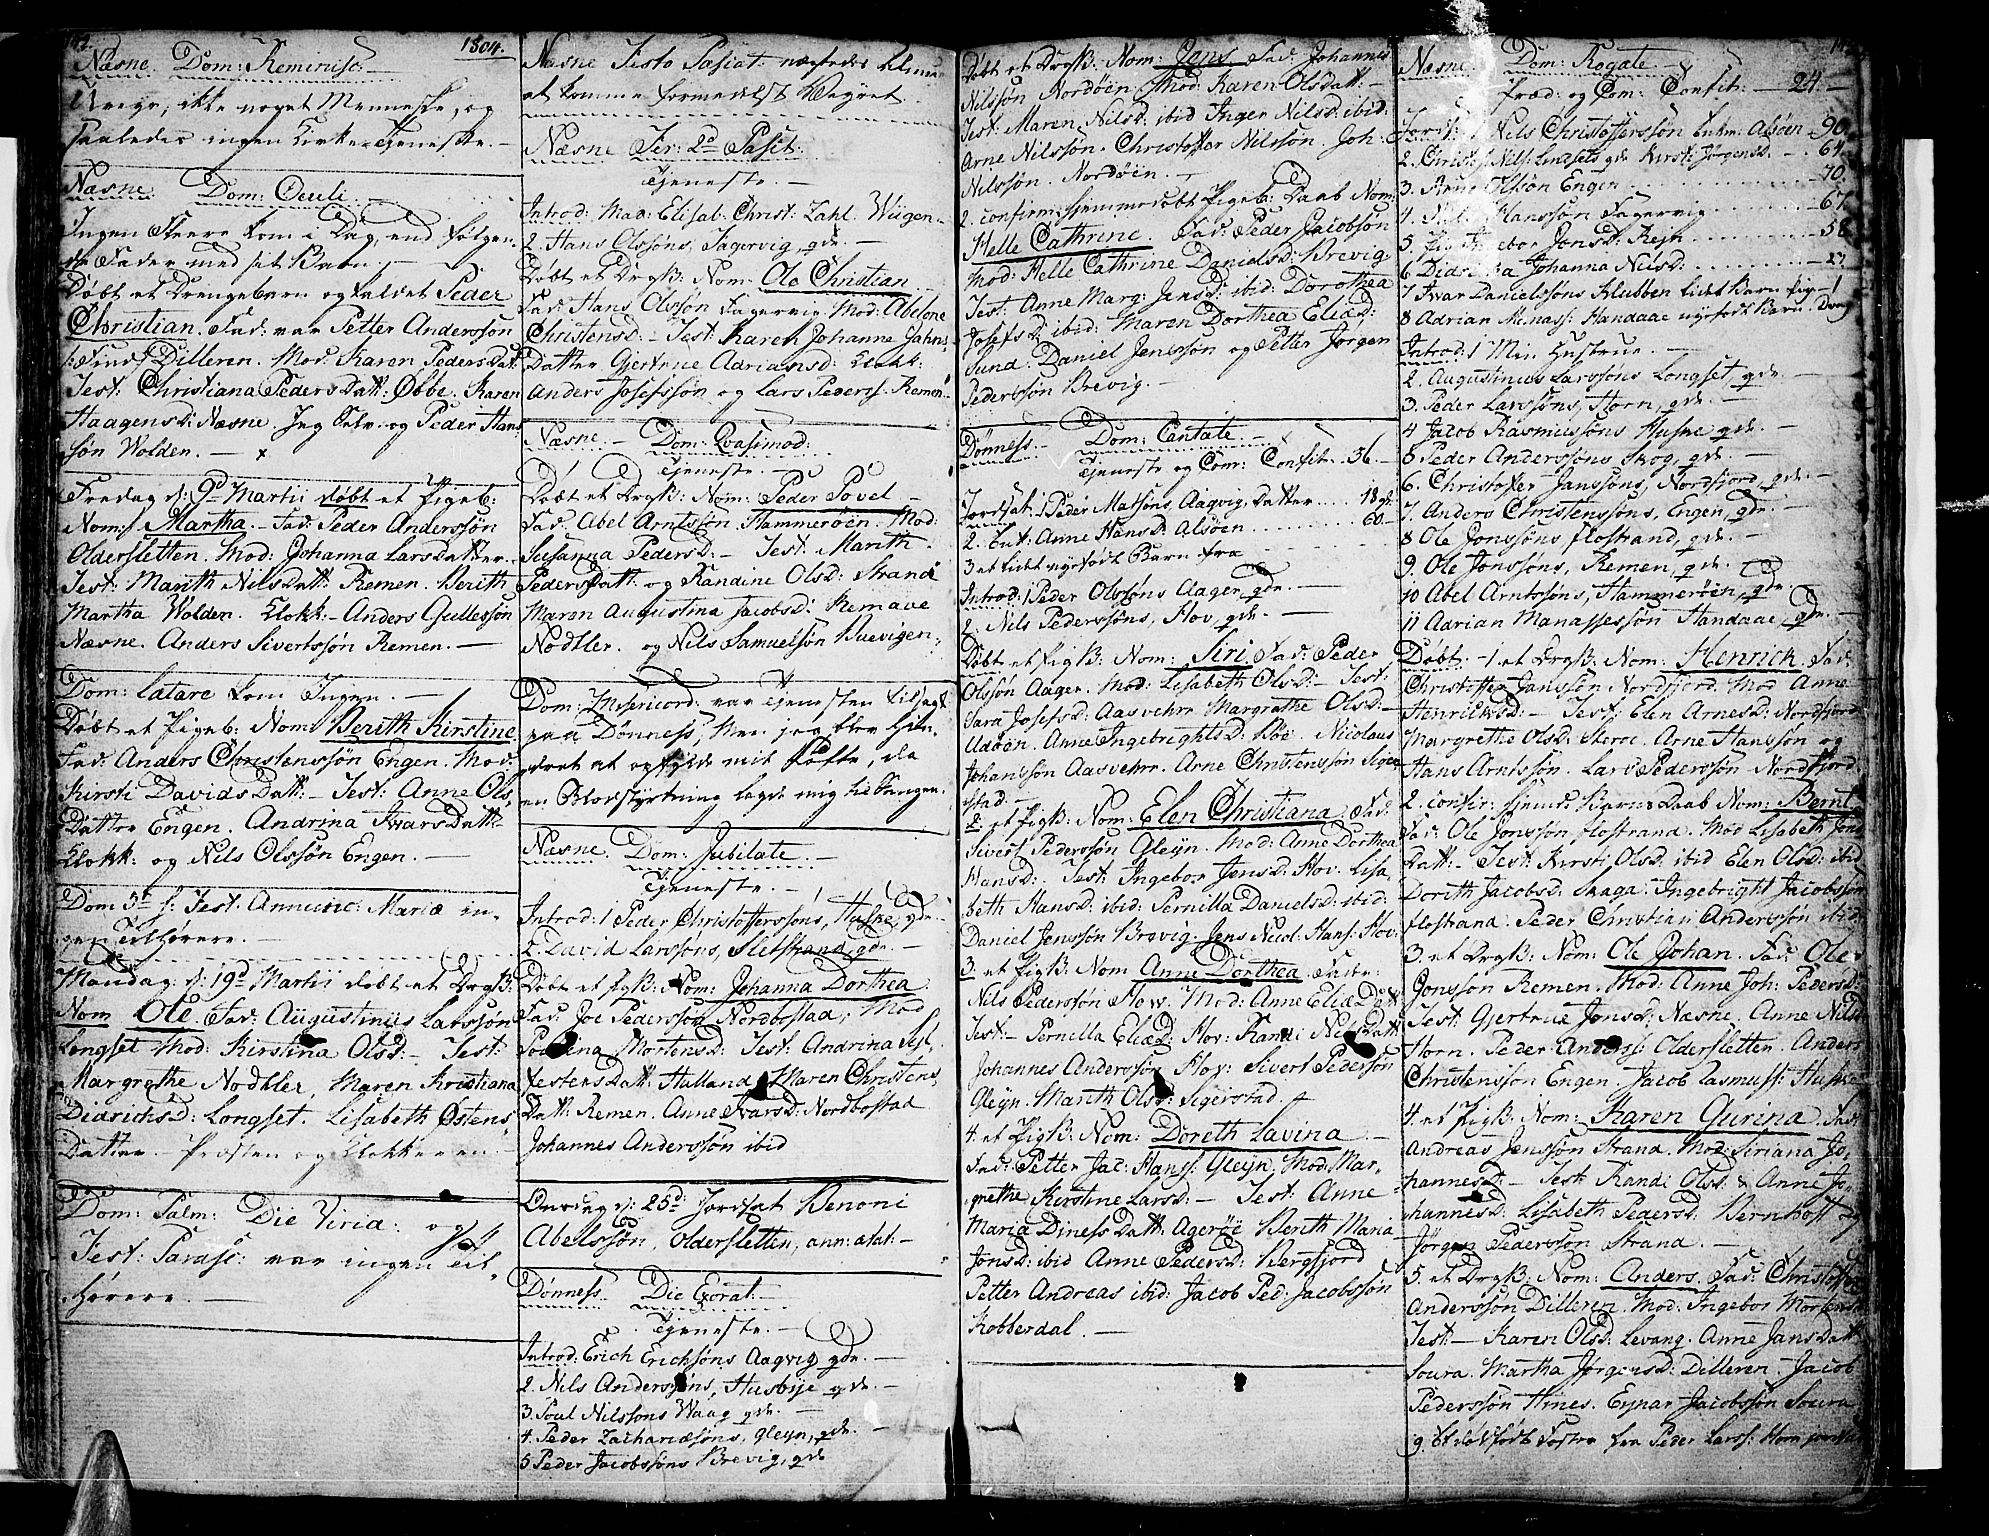 1804.
Næsne. Dom: Reminisc:
Uveyr, ikke noget Menneske, og
saaledes ingen Kirke-Tjeneste. —
Næsne. Dom: Oculi.
Ingen Fleere kom i Dag, end følgen-
de Fader med sit Barn. —
Døbt et Drengebarn og kaldet Peder
Christian. Fad: var Petter Anderssøn
Dilleren. Mod: Karen Peders Dat:
Test: Christiana Peders Datt: Øbbe. Karen
Haagensd: Næsne. Jeg Selv. og Peder Hans
søn Wolden. —
Fredag d: 9d Martii døbt et Pigeb:
Nom: Martha. Fad: Peder Anderssøn
Oldersletten. Mod: Johanna Larsdatter.
Test: Marith Nilsdatt: Remen. Berith
Martha Wolden. Klokk: Anders Gullessøn
Næsne. Anders Sivertssøn Remen. —
Dom: Latare kom Ingen. —
Døbt et Pigeb: Nom: Berith Kirstine
Fad: Anders Christenssøn Engen. Mod:
Kirsti Davids Datt: — Test: Anne Ols
Datter Engen. Andrina Ivars Datt:
Klokk: og Nils Olssøn Engen. —
Dom 5ta f: Fest. Annunc: Mariæ in-
gen Tilhørere. —
Mandag d: 19d Martii døbt et Drgß:
Nom Ole. Fad: Augustinus Larssøn
Longset Mod: Kirstina Olsd: — Test:
Margrethe Nodtler, Maren Kristiana
Didrichsd: Longset. Lisabeth Østens
Datter. Præsten og Klokkeren. —
Dom: Palm: Die Virid: og
Fest: Parasc: var ingen Til-
hørere. —
Næsne Festo Pasčat: nægtedes
at komme formedelst Veyret
Næsne Fer: 2d Pasči:
Tjeneste. —
Introd: Mad: Elisab. Christ: Zahl. Wiigen
2. Hans Olssøns, Fagervig, gde. —
Døbt et Drgß: Nom: Ole Christian
Fad: Hans Olssøn Fagervig. Mod: Abelone
Christensd: — Test: Karen Johanne Jahns
Datter Gjertrue Adriansd: Klokk:
Anders Josefssøn og Lars Peders: Remen.
Næsne. — Dom: Qvasimod:
Tjeneste. —
Døbt et Drgß: Nom: Peder Povel —
Fad: Abel Arntssøn Hammerøen. Mod:
Susanna Pedersd: — Test: Marith
Pedersdatt: og Randine Olsd: Strand
Maren Augustina Jacobsd: Remave
Nodtler. og Nils Samuelsøn Buevigen.
Dom: Misericord: var Tjenesten tilsagt
paa Dønness, Men jeg blev hin-
dret at opfylde mit Løfte, da
en Blodstyrtning lagde mig til Sengen.
Næsne. Dom: Jubilate. —
Tjeneste. —
Introd: 1 Peder Christofferssøns, Huske, gde
2. David Larssøns, Sletstrand, gde. —
Døbt et Pigß: Nom: Johanna Dorthea
Fad: Joe Pederssøn Nordbostad; Mod
Mortensd: Test: Andrina
Datt: Halland, Maren Christens
Datt: Remen. Anne Ivarsd: Nordbostad
Johannes Anderssøn ibid
Onsdag d: 25d: Jordsat Benoni
Abelssøn, Oldersletten, ann: ætat: —
Dønness. Die Exorat.
Tjeneste. —
Introd: Erich Erichsøns Aagvig gde. —
2. Nils Anderssøns, Husbye gde. —
3. Poul Nilssøns Waag gde. —
4. Peder Zachariæsøns, Gleyn, gde. —
5 Peder Jacobssøns Brevig, gde
Døbt et Drgß: Nom: Jens. Fad: Johannes
Nilssøn Nordøen. Mod: Karen Olsdatt: —
Test: Maren Nilsd: ibid Inger Nilsd: ibid:
Arne Nilssøn. Christoffer Nilssøn. Joh:
Nilssøn. Nordøen. —
2. confirm: hjemmedøbt Pigeb: Daab Nom:
Helle Cathrine. Fad: Peder Jacobsøn
Mod: Helle Cathrine Danielsd: Brevig
Test: Anne Marg: Jensd: ibid: Dorothea
Josefsd: ibid: Maren Dorthea Eliæd:
Sund. Daniel Jenssøn og Petter Jørgen
Pederssøn Brevig. —
Dønness. Dom: Cantate. —
Tjeneste og Com: Confit: 56.
Jordsat: 1 Peder Matsøns, Aagvig, Datter .... 18
2. Anne Hansd: Alsøen ........ 60 —
3 et lidet nyfødt Barn fra
Introd: 1 Peder Olssøns Aager, gde. —
2. Nils Pederssøns, Hov, gde. —
Døbt et Pigß: Nom: Siri. Fad: Peder
Olssøn Aager. Mod: Lisabeth Olsd: — Test:
Sara Josefsd: Aasvehr Margrathe Olsd: —
Udøen. Anne Ingebrightsd: Røe. Nicolaus
Johanssøn Aasvehr. Arne Christenssøn Siger-
stad. —
2 et Pigß: Nom: Elen Christiana. Fad:
Sivert Pederssøn Gleyn. Mod: Anne Dorthea
Hansd: Test: Ingebor Jensd: Hov. Lisa-
beth Hansd: ibid: Pernilla Danielsd: ibid:
Daniel Jenssøn Brevig. Jens Nicol: Hans: Hov.
3 et Pigß: Nom Anne Dorthea. Fader:
Nils Pederssøn Hov. Mod: Anne Eliæ Datt
Test: — Pernilla Eliæd: Hov. Randi Nilsdatt
Johannes Anderssøn Hov. Sivert Pedersøn
Gleyn. Marith Olsd: Sigerstad.
4. et Pigß: Nom: Doreth Lavina. —
Fad: Petter Jac: Hans: Gleyn, Mod: Mar-
grethe Kirstine Larsd: — Test: Anne
Maria Diness Datt: Agerøe Berith Maria
Jonsd: ibid Anne Pedersd: Bergfjord
Petter Andreas ibid: Jacob Ped: Jacobssøn
Kobberdal. —
Næsne Dom: Rogate —
Præd: og Com: Confit: — 24. —
Jords: 1 Nils Christofferssøn Alsøen — 90.
2. Christ: Nils: Lindseth gde Kirst: Jørgensd: — 64.
3. Arne Olssøn Engen .... 70.
4. Hanssøn Fagervig .... 67.
5. Ingebor Jonsd: Rejn .... 58
6 Didricka Johanna Nilsd:
7 Ivar Danielssøns Klubben lidet Barn — 1
8 Adrian Menass: Handaae nyfødt Barn
Introd: 1 Min Hustrue. —
2. Augustinus Larssøns Longset gde. —
3. Peder Larssøns, Horn, gde. —
4 Jacob Rasmussøns Huske gde. —
5 Peder Anderssøns Skog, gde. —
6. Christoffer Janssøns, Nordfjord, gde. —
7. Anders Christenssøns, Engen, gde. —
8 Ole Jonssøns, Flostrand, gde. —
9. Ole Jonssøns, Remen, gde. —
10 Abel Arntssøns, Hammerøen, gde
11 Adrian Manassessøn Handaae, gde. —
Døbt: — 1. et Drgß: Nom: Henrick. Fad:
Christoffer Janssøn Nordfjord. Mod Anne
Henricksd: — Test: Elen Arnesd: Nordfjord
Margrethe Olsd: Arne Hanssøn og
Hans Arntssøn. Lars Pederssøn Nordfjord
2. confir: hjemd: Barns Daab Nom: Bernt
Fad: Ole Jonssøn Flostrand. Mod Lisabeth Jons
Datt: — Test: Kirsti Olsd: ibid Elen Olsd: ibid
Dorith Jacobsd: Skaga. Ingebright Jacobssøn
Flostrand. Peder Christian Anderssøn ibid:
3. et Drgß: Nom: Ole Johan. Fad: Ole
Jonssøn Remen. Mod: Anne Joh: Pedersd:
Test: Gjertrue Jonsd: Næsne. Anne Nilsd:
Horn. Peder Anders: Oldersletten. Anders
Christenssøn Engen. Jacob Rasmuss: Huske
4. et Pigß: Nom: Karen Gurina. Fad:
Andreas Jenssøn Strand. Mod: Siriana Jo-
hannesd: — Test Randi Olsd: & Anne Jo-
hannesd: Lisabeth Pedersd: Bernhoft og
Jørgen Pederssøn Strand. —
5. et Drgß: Nom: Anders. Fad: Christoffer
Anderssøn Dilleren. Mod: Ingebor Mortensd:
Test: — Karen Olsd: Levang. Anne Jansdatt
Soura. Martha Jørgensd: Dilleren. Jacob
Pederssøn Hines. Eynar Jacobssøn Soura
9. Et dødfødt Foster fra Peder Larss: Horn